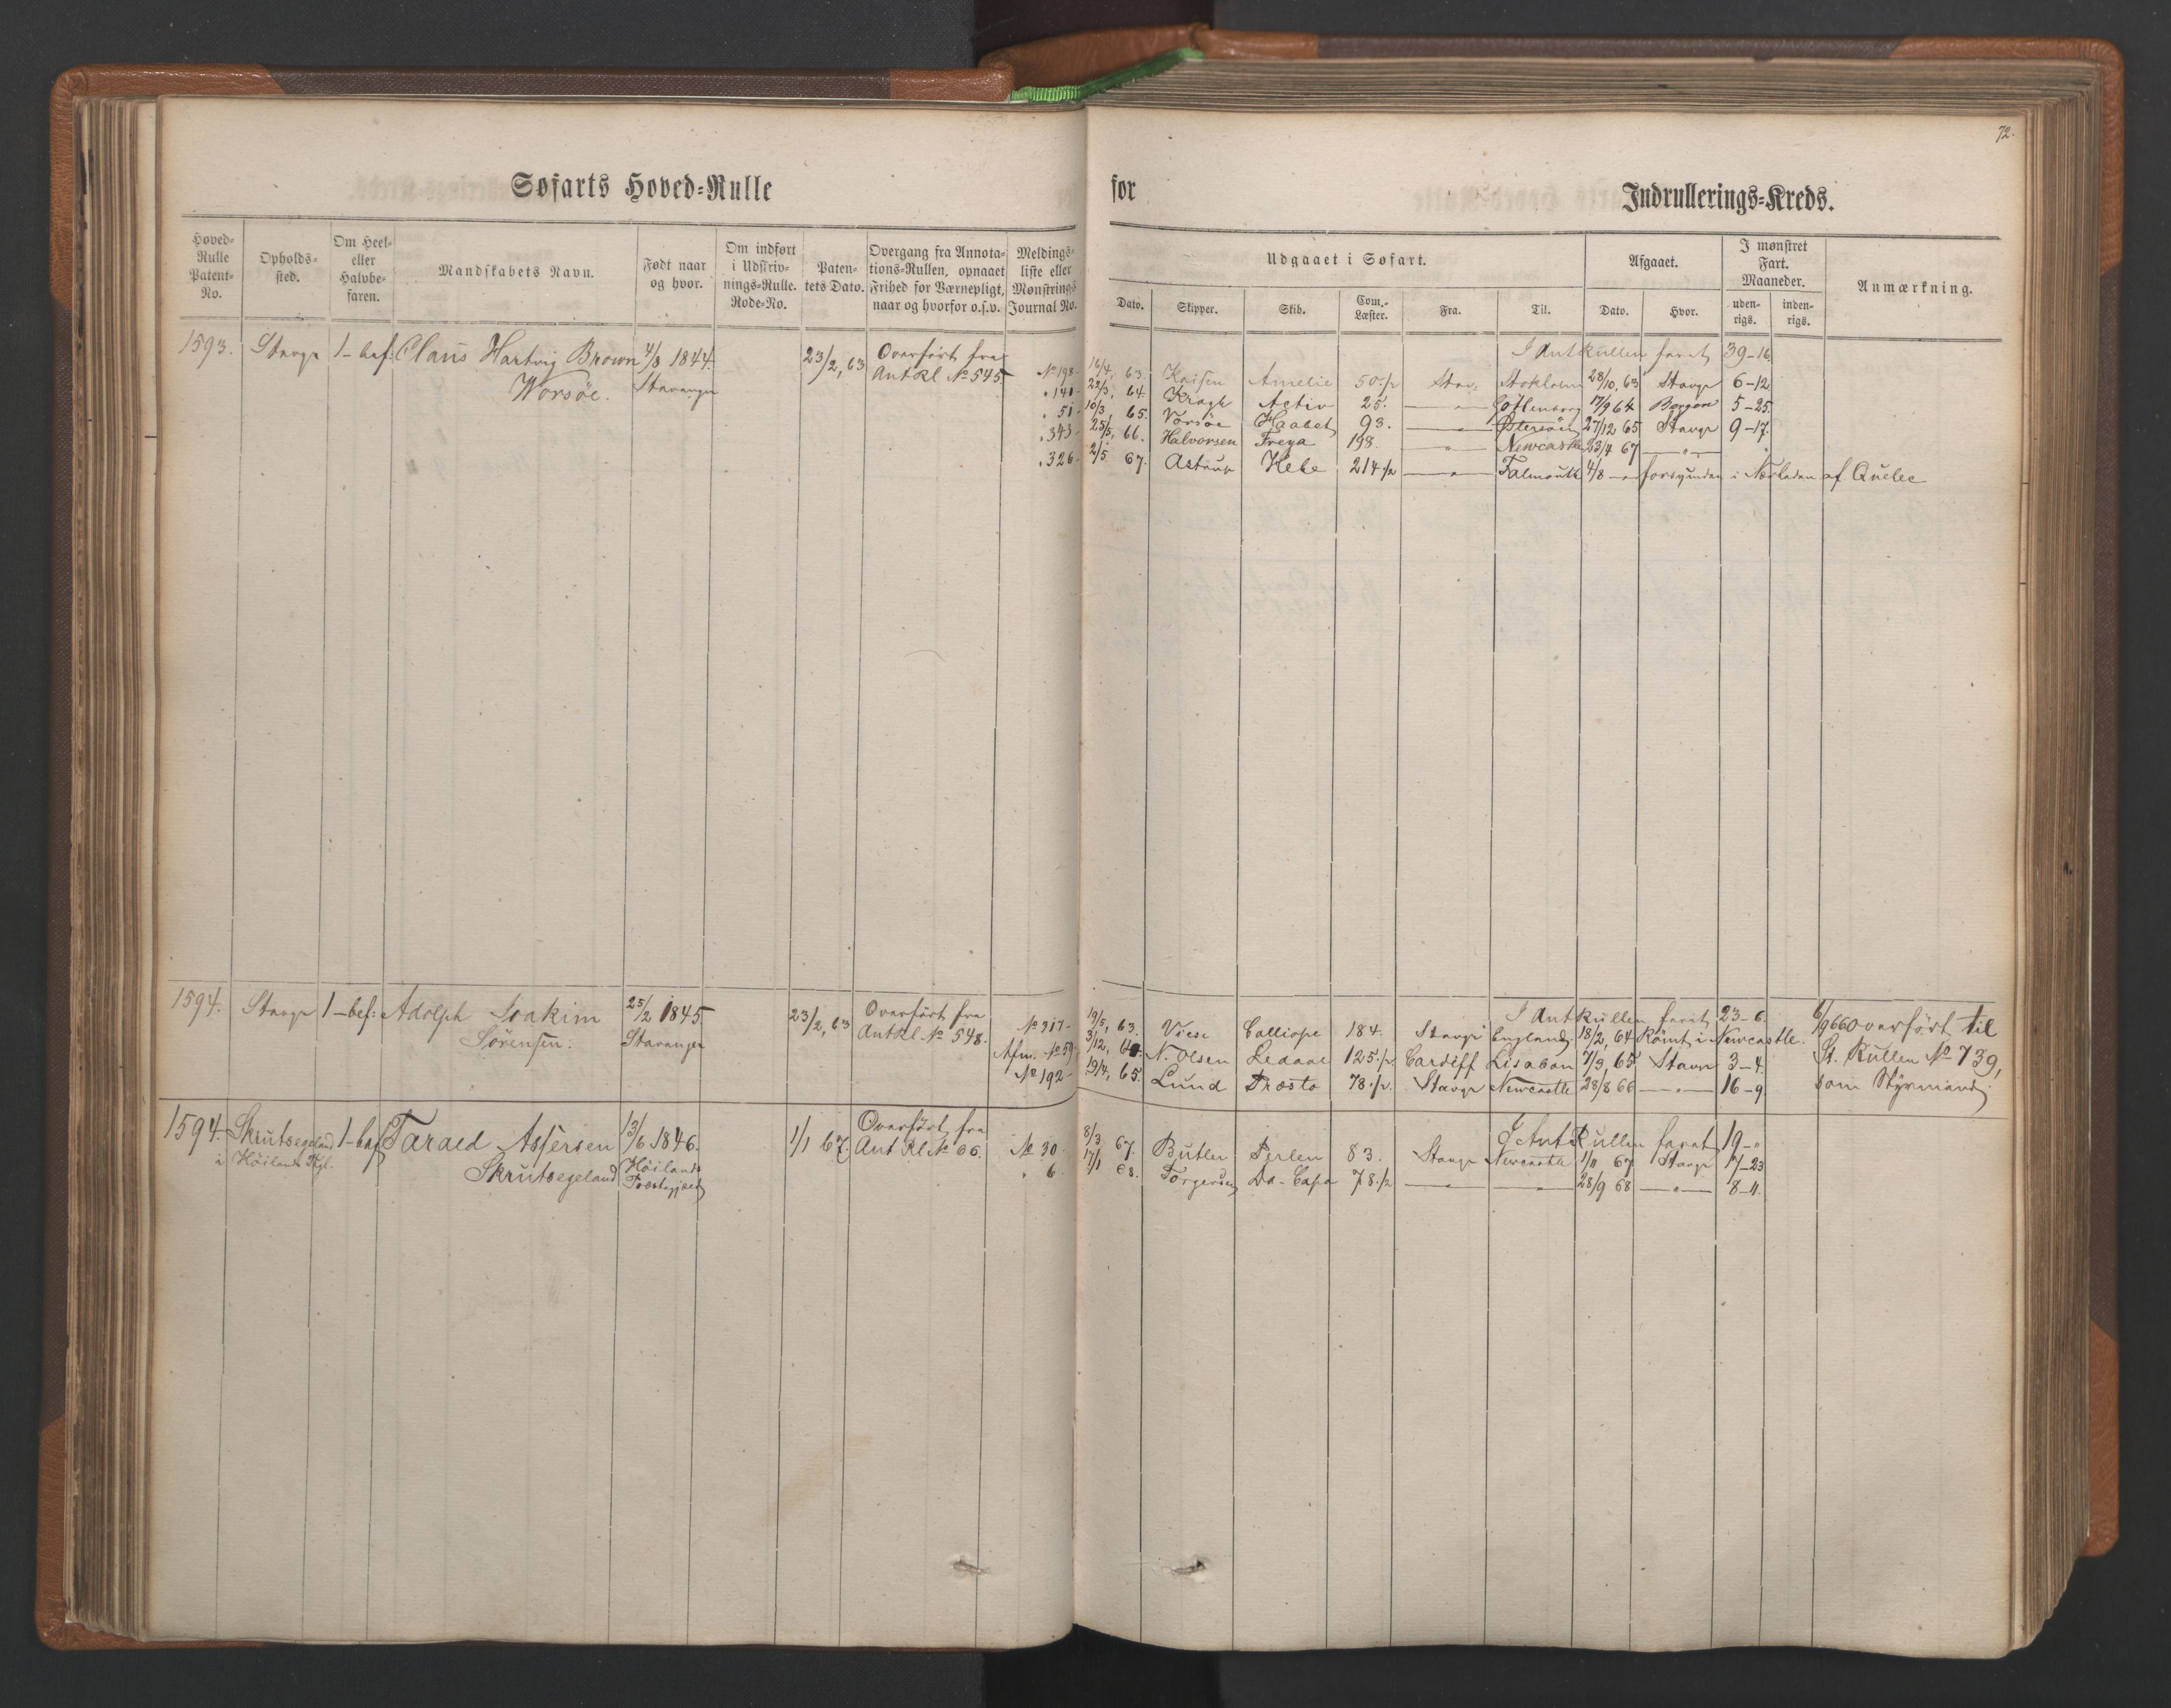 72.
Søfarts Hoved-Rulle for Indrullerings-Kreds.
Hoved-Rulle Patent-No.
Opholds-sted.
Om Heel- eller Halvbe-faren.
Mandskabets Navn.
Født naar og hvor.
Om indført i Udskriv-nings-Rulle. Rode-No.
Paten-tets Dato.
Overgang fra Annota-tions-Rullen, opnaaet Frihed for Værnepligt, naar og hvorfor o.s.v.
Meldings-liste eller Mønstrings Journal No.
Udgaaet i Søfart.
Dato.
Skipper.
Skib.
Com.-Læster.
Fra.
Til.
Afgaaet.
Dato.
Hvor.
I mønstret Fart. Maaneder.
uden-rigs.
inden-rigs.
Anmærkning.
1593. Stavgr 1-bef: Claus Hartvig Brown 4/8 1844. 23/2, 63 Overført fra I Antkullen faret 39-16
Worsöe. Stavanger AntRl No 545
No 198. 16/4, 63. Amelie 50 1/2 Stav: Stokholm 28/10, 63 Stavgr 6-12
" 141 22/3, 64. Kragh Activ 25. " Gøttenborg 17/9 64 Bergen 5-25.
" 51 10/3, 65. Vorsöe Haabet 93. " Østersöen 27/12 65 Stavgr 9-17.
" 343 25/5, 66. Halvorsen Freya 198. " Newcastle 23/4 67 "
" 326 2/5 67. Astrup Hebe 214 1/2 " Falmouth 4/8 " forsvunden i Nærheden af Quebec
1594. Stavgr 1-bef: Adolph Joakim 25/2 1845. 23/2, 63 Overført fra I Antkullen faret 23-6.
Sörensen. Stavanger AntRl No 548.
No 317- 19/5, 63. Viese Calliope 184. Stavgr England. 18/2, 64 Römt i Newcastle.
Afm. No 59 3/12, 64. N. Olsen Ledaal 125 1/2. Cardiff Lisabon 7/3, 65 Stavr 3-4.
No 192- 19/4, 65. Lund Præsto 78 1/2. Stavgr Newcastle 28/8 66 " 16-9.
6/9 66 Overført til
St. Rullen No 739,
som Styrmand.
1594. Skrutsegeland 1-bef Tarald Asgersen 13/6 1846. 1/1 67. Overført fra I Ant Rullen faret 19-"
i Höilands Pgl. Skrutsegeland Höilands Præstegjæld Ant Rl No 66.
No 30 8/3 67. Butler Perlen 83. Stavgr Newcastle 1/11 67 Stavgr 17-23
" 6 17/1 68. Torgersen Da-Capo 78 1/2 " " 28/9 68 " 8-11.